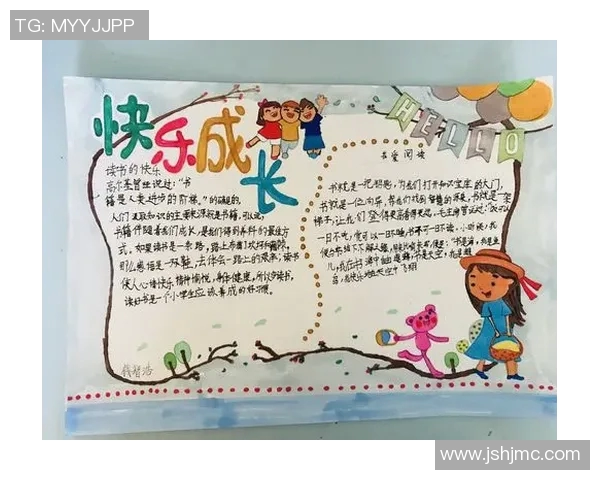 TG: MYYJJPP
快乐成长
HELLO
读书的快乐
高尔基曾经说过："书
籍是人类进步的阶梯。"的确是的,
人们汲取知识的主要来源就是书籍,可以说,
书籍伴随着我们成长,是我们得到养料的最佳方
式。如果读书是一条路,路上布满了坎坷和崎岖,
那么
去体会一路上的艰辛,读书
使人心情快乐,精神愉悦,身体健康,所以多读书,
读好书是一个小学生应该养成的好习惯。
钱智浩
书是一把钥匙,为我们打开知识宝库的大门,
书就是一位向导,带我们找到智慧的源泉,书就是一架
梯子,让我们登得更高看得更远,毛主席曾说过:"饭可以
一日不吃,觉可以一日不睡,书不可一日不读
www.jshjmc.com